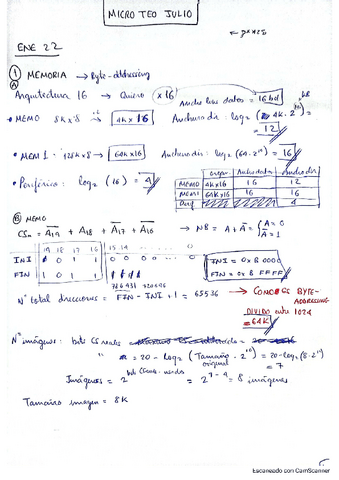 MICRO TEO JULIO
ENE 22
① MEMORIA → Byte-addressing
Ⓐ
Arquitectura 16 → Quiero ×16
Ancho bus datos = 16 bit
• MEMO 8K×8 → 4K×16
Ancho dir: log₂ (4K·2¹⁰) =
= 12
• MEM1: 128K×8 → 64K×16
Ancho dir: log₂ (64·2¹⁰) = 16
• Periféricos: log₂ (16) = 4
Ancho datos Ancho dir
MEM0 4K×16 16 12
MEM1 64K×16 16 16
Perif 4
Ⓑ MEMO
CS = A19 + A18 + A17 + A16
→ NB = A + A = { A = 0
A = 1
19 18 17 16 15 14
INI 1 0 1 1
FIN 1 0 1 1
INI = 0xB0000
FIN = 0xBFFFF
Nº total direcciones = FIN - INI + 1 = 65536
→ BYTE-ADDRESSING
DIVIDO entre 1024
= 64K
Nº imágenes: bits CS reales
= 20 - log₂ (Tamaño original · 2¹⁰) = 20 - log₂ (8·2¹⁰)
= 7
Imágenes = 2 = 2⁷⁻⁴ = 8 imágenes
Tamaño imagen = 8K
Escaneado con CamScanner